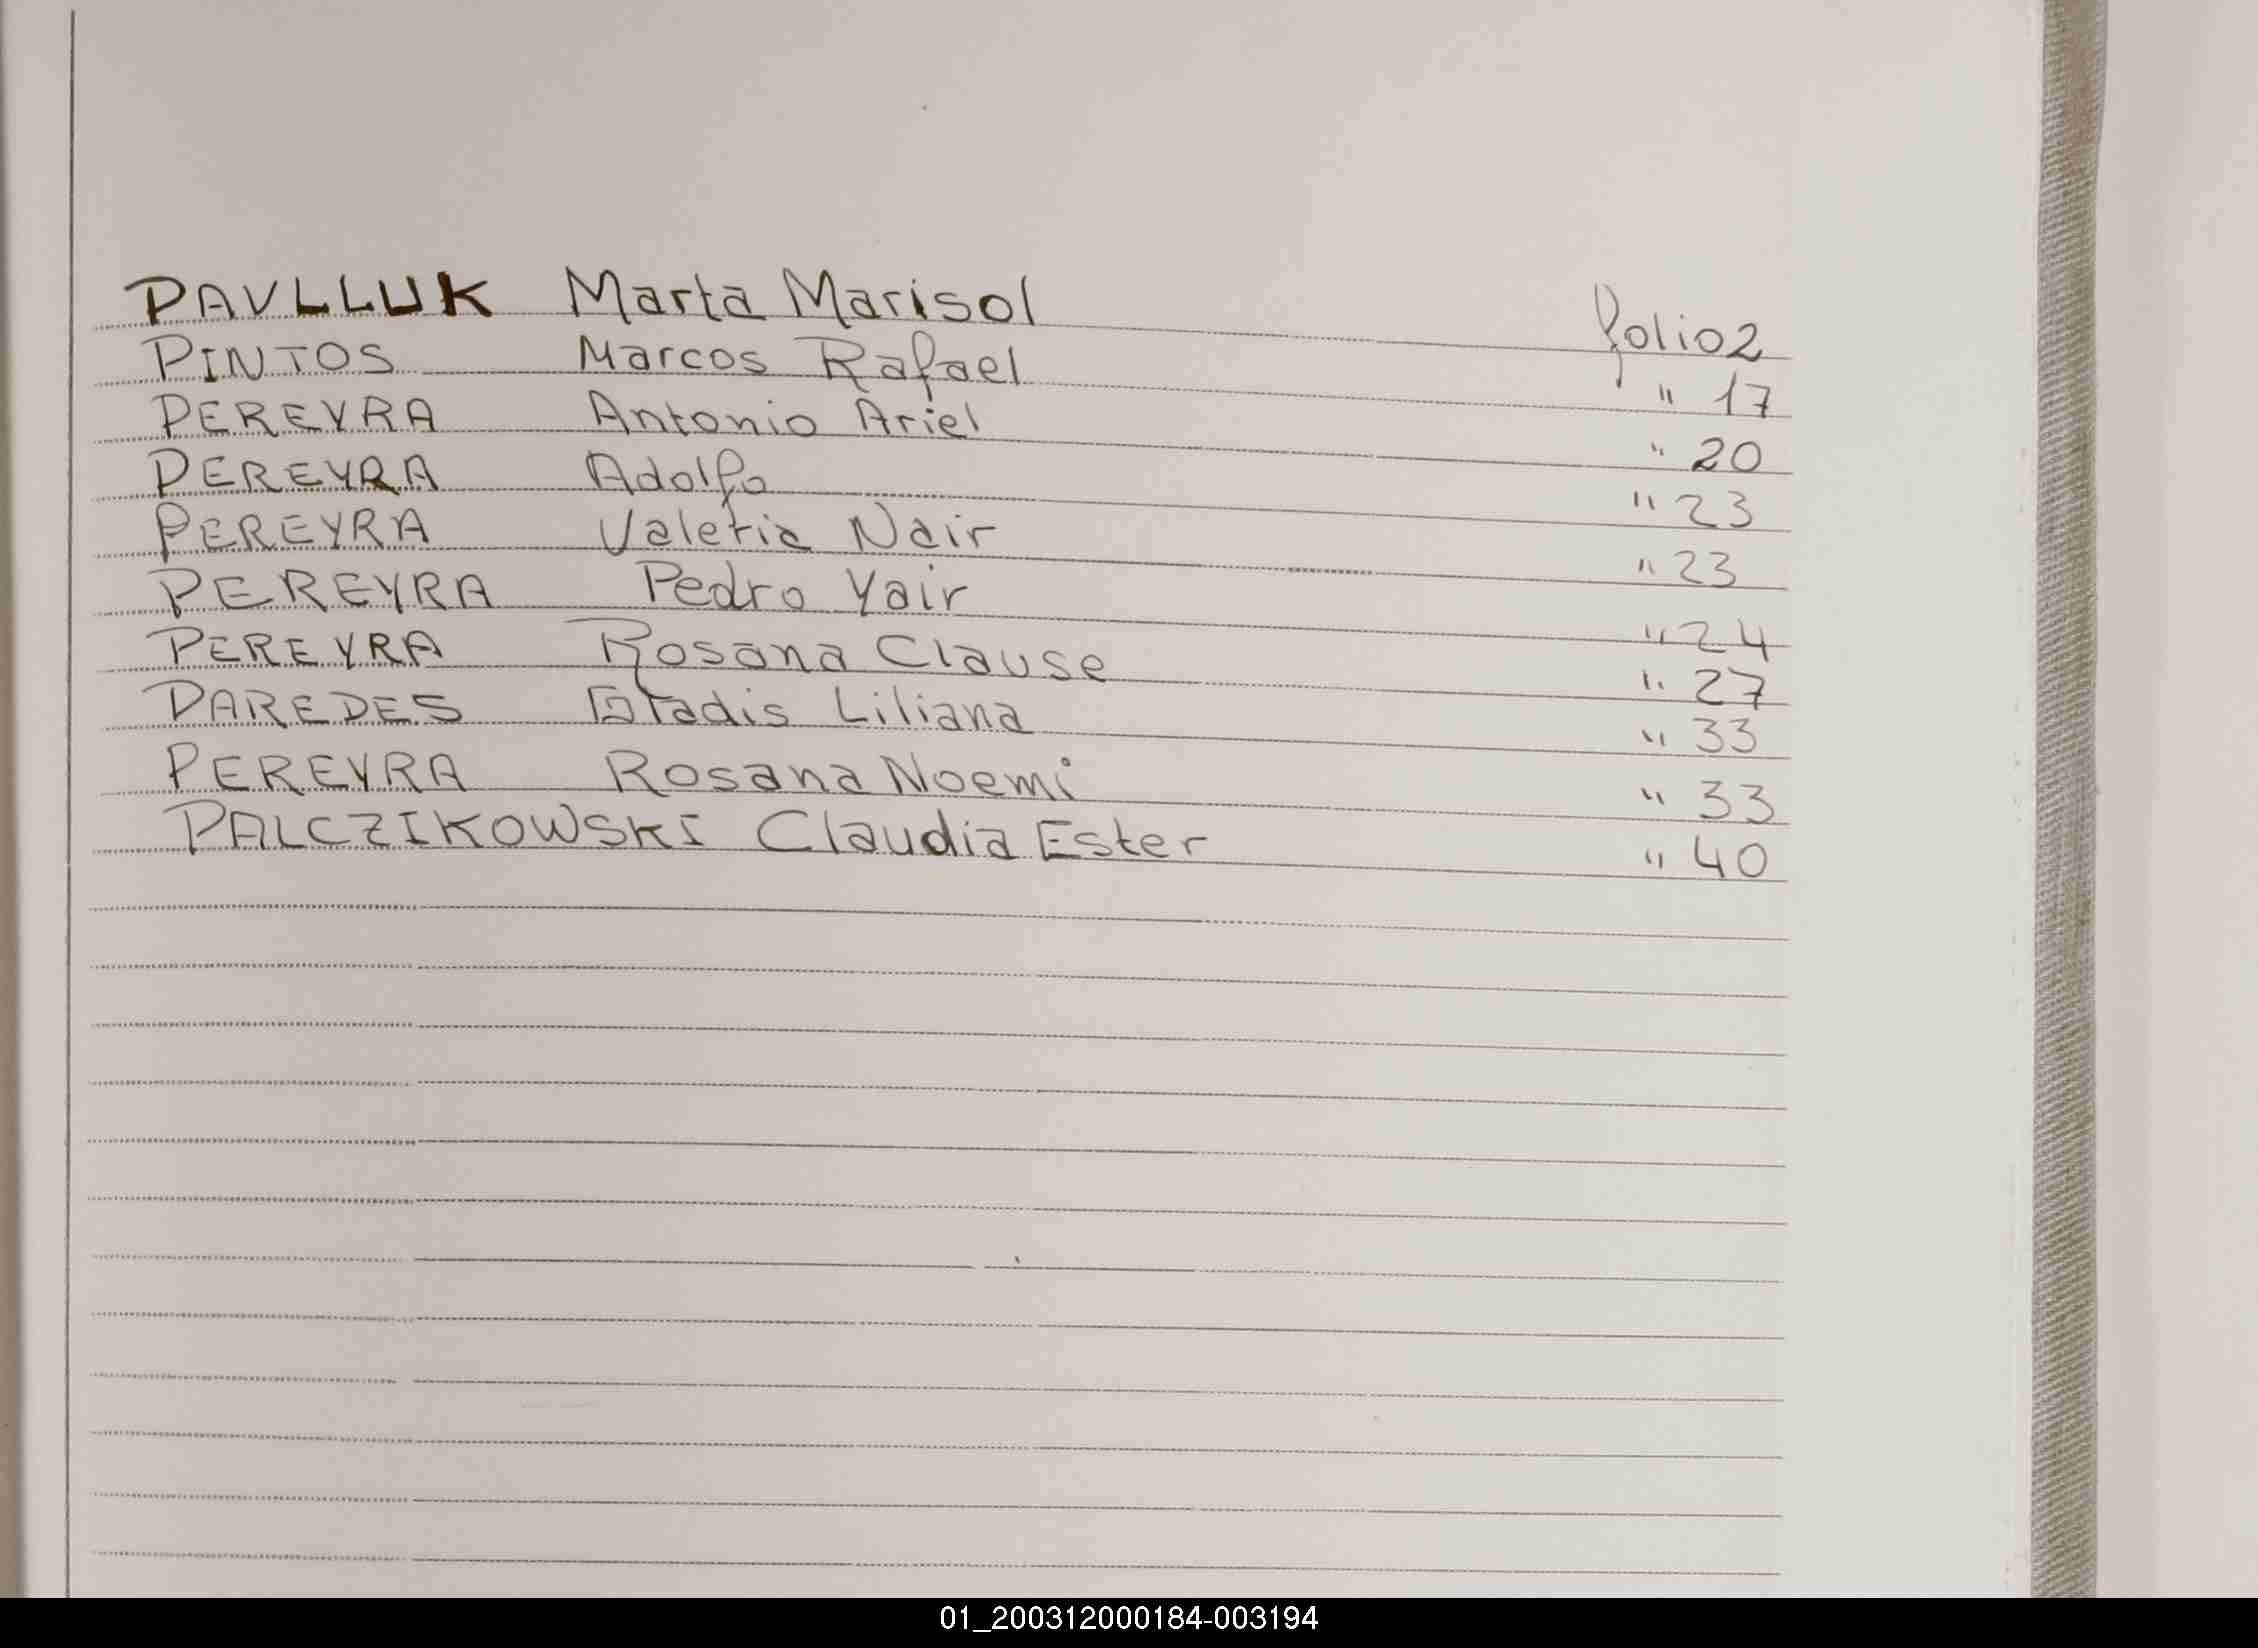 PAVLLUK Marta Marisol folio 2
PINTOS Marcos Rafael " 17
PEREYRA Antonio Ariel " 20
PEREYRA Adolfo " 23
PEREYRA Valeria Nair " 23
PEREYRA Pedro Yair " 24
PEREYRA Rosana Clause " 27
PAREDES Gladis Liliana " 33
PEREYRA Rosana Noemi " 33
PALCZIKOWSKI Claudia Ester " 40
01_200312000184-003194